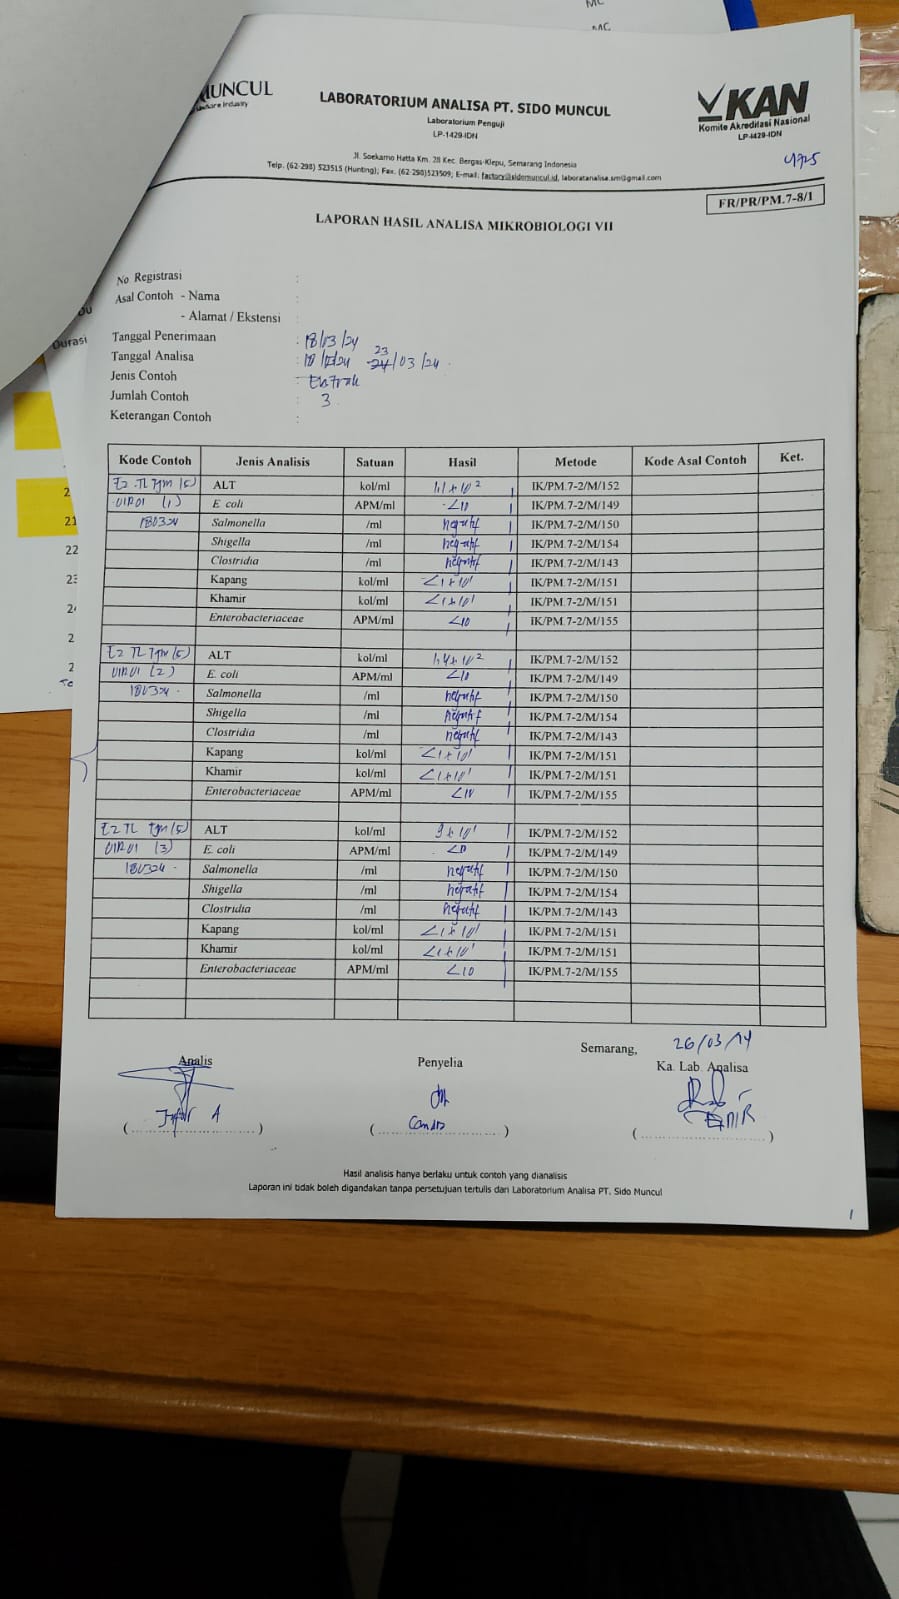 MC
MC
MUNCUL
LABORATORIUM ANALISA PT. SIDO MUNCUL
Laboratorium Penguji
LP-1429-IDN
KAN
Komite Akreditasi Nasional
LP-1429-IDN
Jl. Soekarno Hatta Km. 28 Kec. Bergas-Klepu, Semarang Indonesia
Telp. (62-298) 523515 (Hunting); Fax. (62-298)523509; E-mail: factory@sidomuncul.id, laboratanalisa.sm@gmail.com
FR/PR/PM.7-8/1
LAPORAN HASIL ANALISA MIKROBIOLOGI VII
No Registrasi :
Asal Contoh - Nama :
- Alamat / Ekstensi :
Tanggal Penerimaan : 18/03/24
Tanggal Analisa : 23 /03/24.
Jenis Contoh :
Jumlah Contoh : 3
Keterangan Contoh :
Durasi
Kode Contoh Jenis Analisis Satuan Hasil Metode Kode Asal Contoh Ket.
ALT kol/ml 1,1 x 10² IK/PM.7-2/M/152
(1) E. coli APM/ml <10 IK/PM.7-2/M/149
180324 Salmonella /ml negatif IK/PM.7-2/M/150
Shigella /ml negatif IK/PM.7-2/M/154
Clostridia /ml negatif IK/PM.7-2/M/143
Kapang kol/ml <1 x 10¹ IK/PM.7-2/M/151
Khamir kol/ml <1 x 10¹ IK/PM.7-2/M/151
Enterobacteriaceae APM/ml <10 IK/PM.7-2/M/155
ALT kol/ml 1,4 x 10² IK/PM.7-2/M/152
(2) E. coli APM/ml <10 IK/PM.7-2/M/149
180324 Salmonella /ml negatif IK/PM.7-2/M/150
Shigella /ml negatif IK/PM.7-2/M/154
Clostridia /ml negatif IK/PM.7-2/M/143
Kapang kol/ml <1 x 10¹ IK/PM.7-2/M/151
Khamir kol/ml <1 x 10¹ IK/PM.7-2/M/151
Enterobacteriaceae APM/ml <10 IK/PM.7-2/M/155
ALT kol/ml 9 x 10¹ IK/PM.7-2/M/152
(3) E. coli APM/ml <10 IK/PM.7-2/M/149
180324 Salmonella /ml negatif IK/PM.7-2/M/150
Shigella /ml negatif IK/PM.7-2/M/154
Clostridia /ml negatif IK/PM.7-2/M/143
Kapang kol/ml <1 x 10¹ IK/PM.7-2/M/151
Khamir kol/ml <1 x 10¹ IK/PM.7-2/M/151
Enterobacteriaceae APM/ml <10 IK/PM.7-2/M/155
21
22
Semarang,
Analis Penyelia Ka. Lab. Analisa
Hasil analisis hanya berlaku untuk contoh yang dianalisis
Laporan ini tidak boleh digandakan tanpa persetujuan tertulis dari Laboratorium Analisa PT. Sido Muncul
1